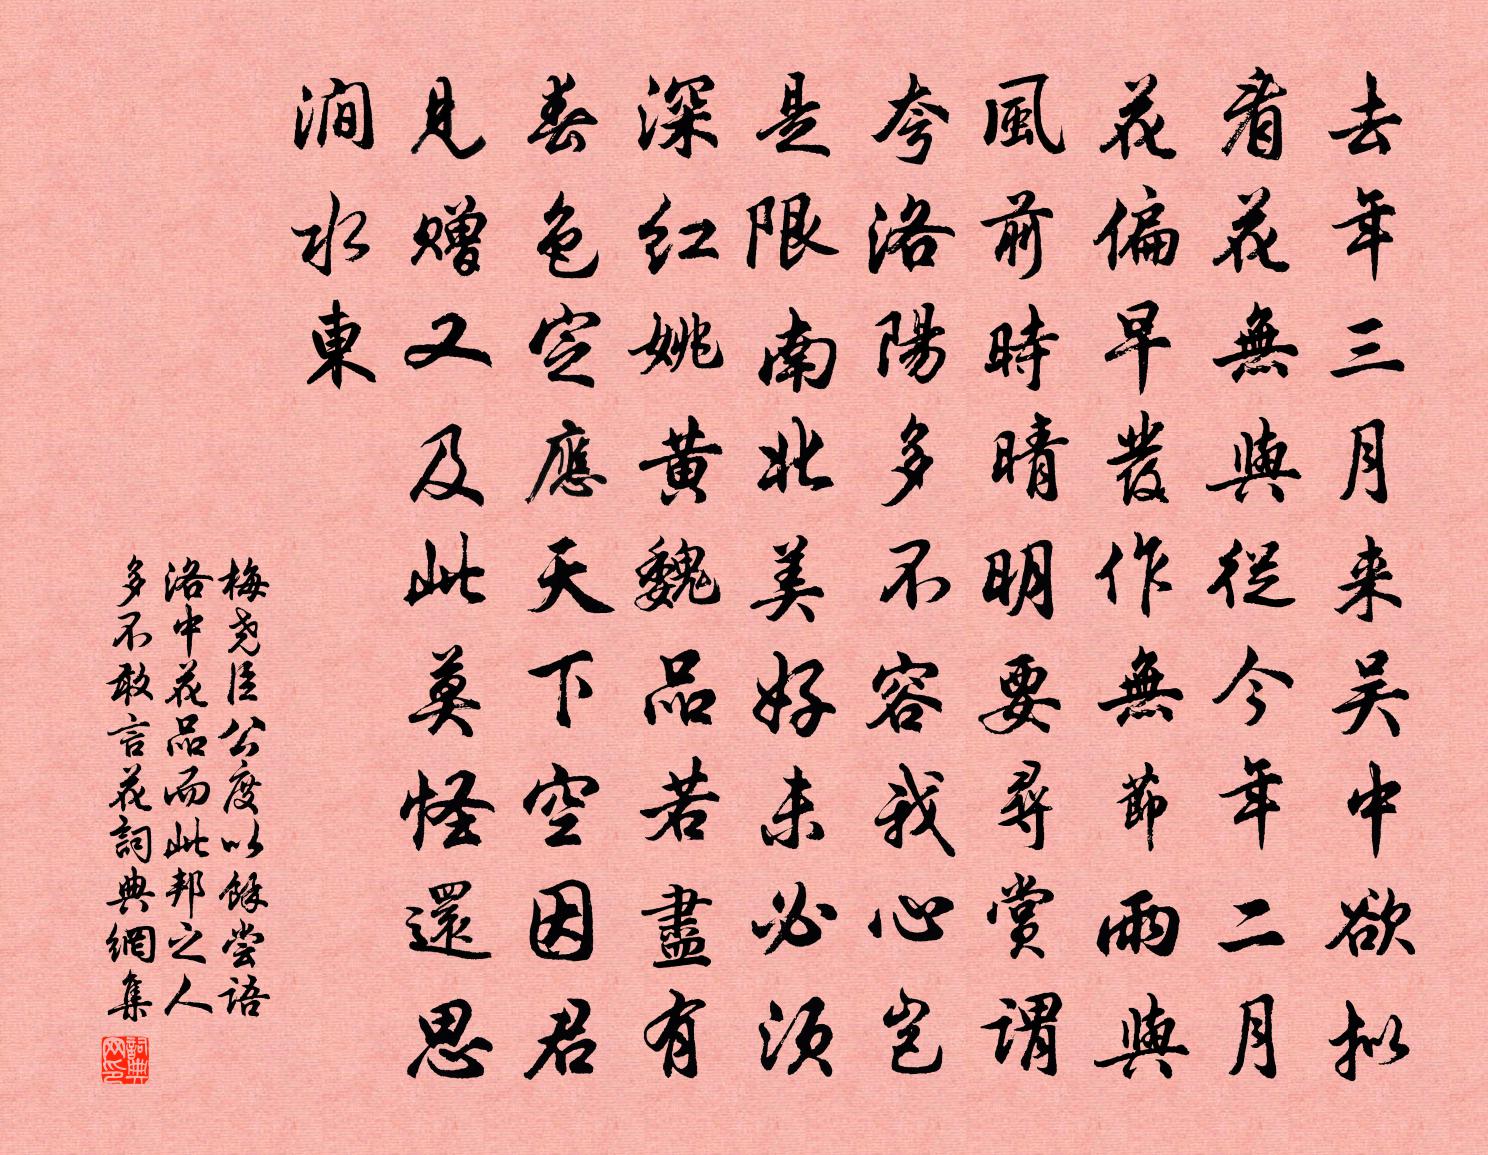 去年三月来吴中欲拟
看花無與從今年二月
花偏早發作無節雨與
風前時晴明要尋賞謂
夸洛陽多不容我心岂
是限南北美好未必須
深红姚黄魏品若盡有
春色定應天下空因君
見赠又及此莫怪還思
澗水東
梅尧臣公度以餘尝语
洛中花品而此邦之人
多不敢言花詞典網集
詞典网印